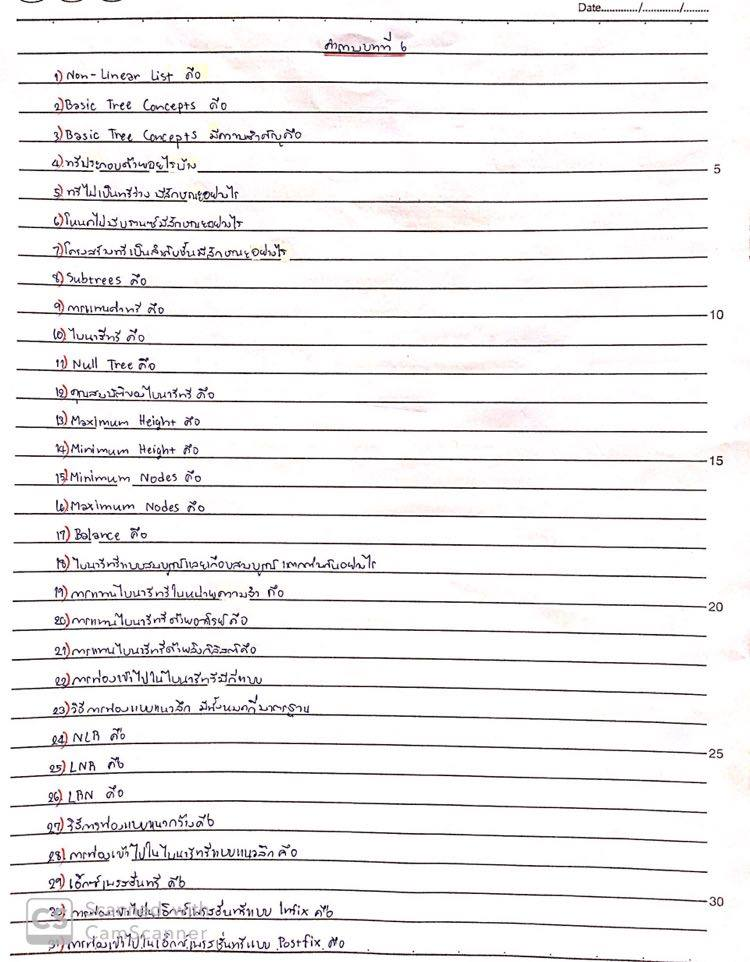 Date............/............/........
คำถามบทที่ 6
1) Non-Linear List คือ
2) Basic Tree Concepts คือ
3) Basic Tree Concepts มีความสำคัญคือ
4) ทรีประกอบด้วยอะไรบ้าง
5
5) ทรีไม่เป็นทรีว่าง มีลักษณะอย่างไร
6) โหนดไม่มีบรานซ์มีลักษณะอย่างไร
7) โครงสร้างทรีเป็นลำดับชั้นมีลักษณะอย่างไร
8) Subtrees คือ
9) การแทนค่าทรี คือ
10
10) ไบนารีทรี คือ
11) Null Tree คือ
12) คุณสมบัติของไบนารีทรี คือ
13) Maximum Height คือ
14) Minimum Height คือ
15
15) Minimum Nodes คือ
16) Maximum Nodes คือ
17) Balance คือ
18) ไบนารีทรีแบบสมบูรณ์และเกือบสมบูรณ์ แตกต่างกันอย่างไร
19) การแทนไบนารีทรีในหน่วยความจำ คือ
20
20) การแทนไบนารีทรีด้วยอาร์เรย์ คือ
21) การแทนไบนารีทรีด้วยลิงก์ลิสต์คือ
22) การท่องเข้าไปในไบนารีทรีมีกี่แบบ
23) วิธีการท่องแบบแนวลึก มีทั้งหมดกี่มาตรฐาน
24) NLR คือ
25
25) LNR คือ
26) LRN คือ
27) วิธีการท่องแบบแนวกว้างคือ
28) การท่องเข้าไปในไบนารีทรีแบบแนวลึก คือ
29) เอ็กซ์เพรสชั่นทรี คือ
30
30) การท่องเข้าไปในเอ็กซ์เพรสชั่นทรีแบบ Infix คือ
31) การท่องเข้าไปในเอ็กซ์เพรสชั่นทรีแบบ Postfix คือ
CS Scanned with
CamScanner